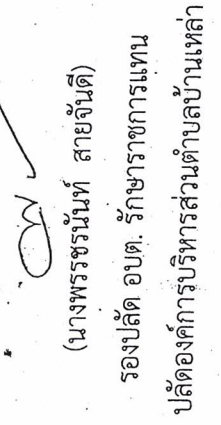 (นางพรรชรนันท์ สายจันดี)
รองปลัด อบต. รักษาราชการแทน
ปลัดองค์การบริหารส่วนตำบลบ้านเหล่า